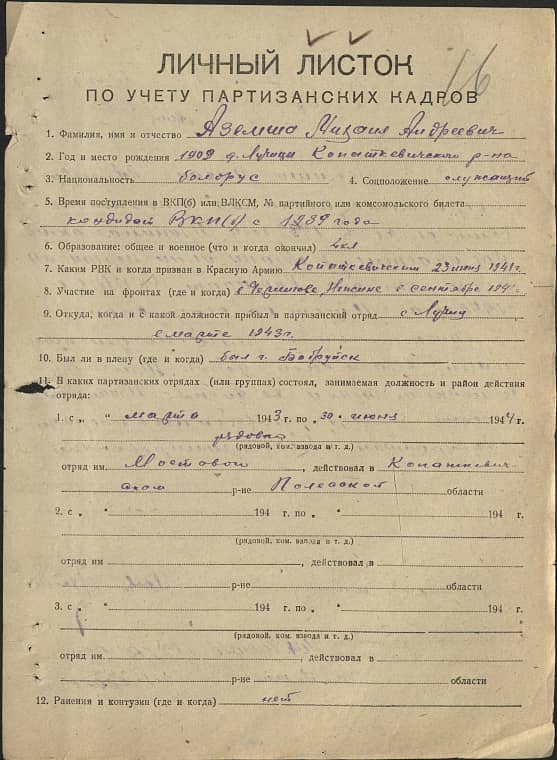 ЛИЧНЫЙ ЛИСТОК
116
ПО УЧЕТУ ПАРТИЗАНСКИХ КАДРОВ
1. Фамилия, имя и отчество Аземша Михаил Андреевич
2. Год и место рождения 1909 д. Лучицы Копаткевичского р-на
3. Национальность белорус 4. Соцположение служащий
5. Время поступления в ВКП(б) или ВЛКСМ, № партийного или комсомольского билета
кандидат ВКП(б) с 1939 года
6. Образование: общее и военное (что и когда окончил) 4кл
7. Каким РВК и когда призван в Красную Армию Копаткевичским 23 июня 1941г.
8. Участие на фронтах (где и когда) в Чернигове, в сентябре 1941г.
9. Откуда, когда и с какой должности прибыл в партизанский отряд с Лучиц
в марте 1943г.
10. Был ли в плену (где и когда) был г. Бобруйск
11. В каких партизанских отрядах (или группах) состоял, занимаемая должность и район действия
отряда:
1. с „ “ марта 1943 г. по „ 30 “ июня 1944 г.
рядовой
(рядовой, ком. взвода и т. д.)
отряд им. Мостового, действовал в Копаткевич
ском р-не Полесской области
2. с „ “ 194 г. по „ “ 194 г.
(рядовой, ком. взвода и т. д.)
отряд им. , действовал в
р-не области
3. с „ “ 194 г. по „ “ 194 г.
(рядовой, ком. взвода и т. д.)
отряд им. , действовал в
р-не области
12. Ранения и контузии (где и когда) нет